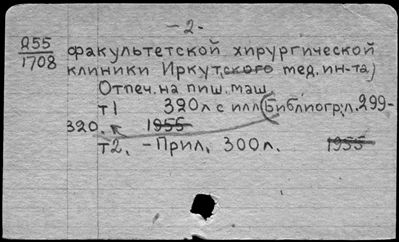 - 2 -
Д55
1708
факультетской хирургической
клиники Иркутского мед. ин-та)
Отпеч. на пиш. маш.
т1 320л с илл (Библиогр: л. 299-
320. 1955
т2. - Прил. 300л. 1955